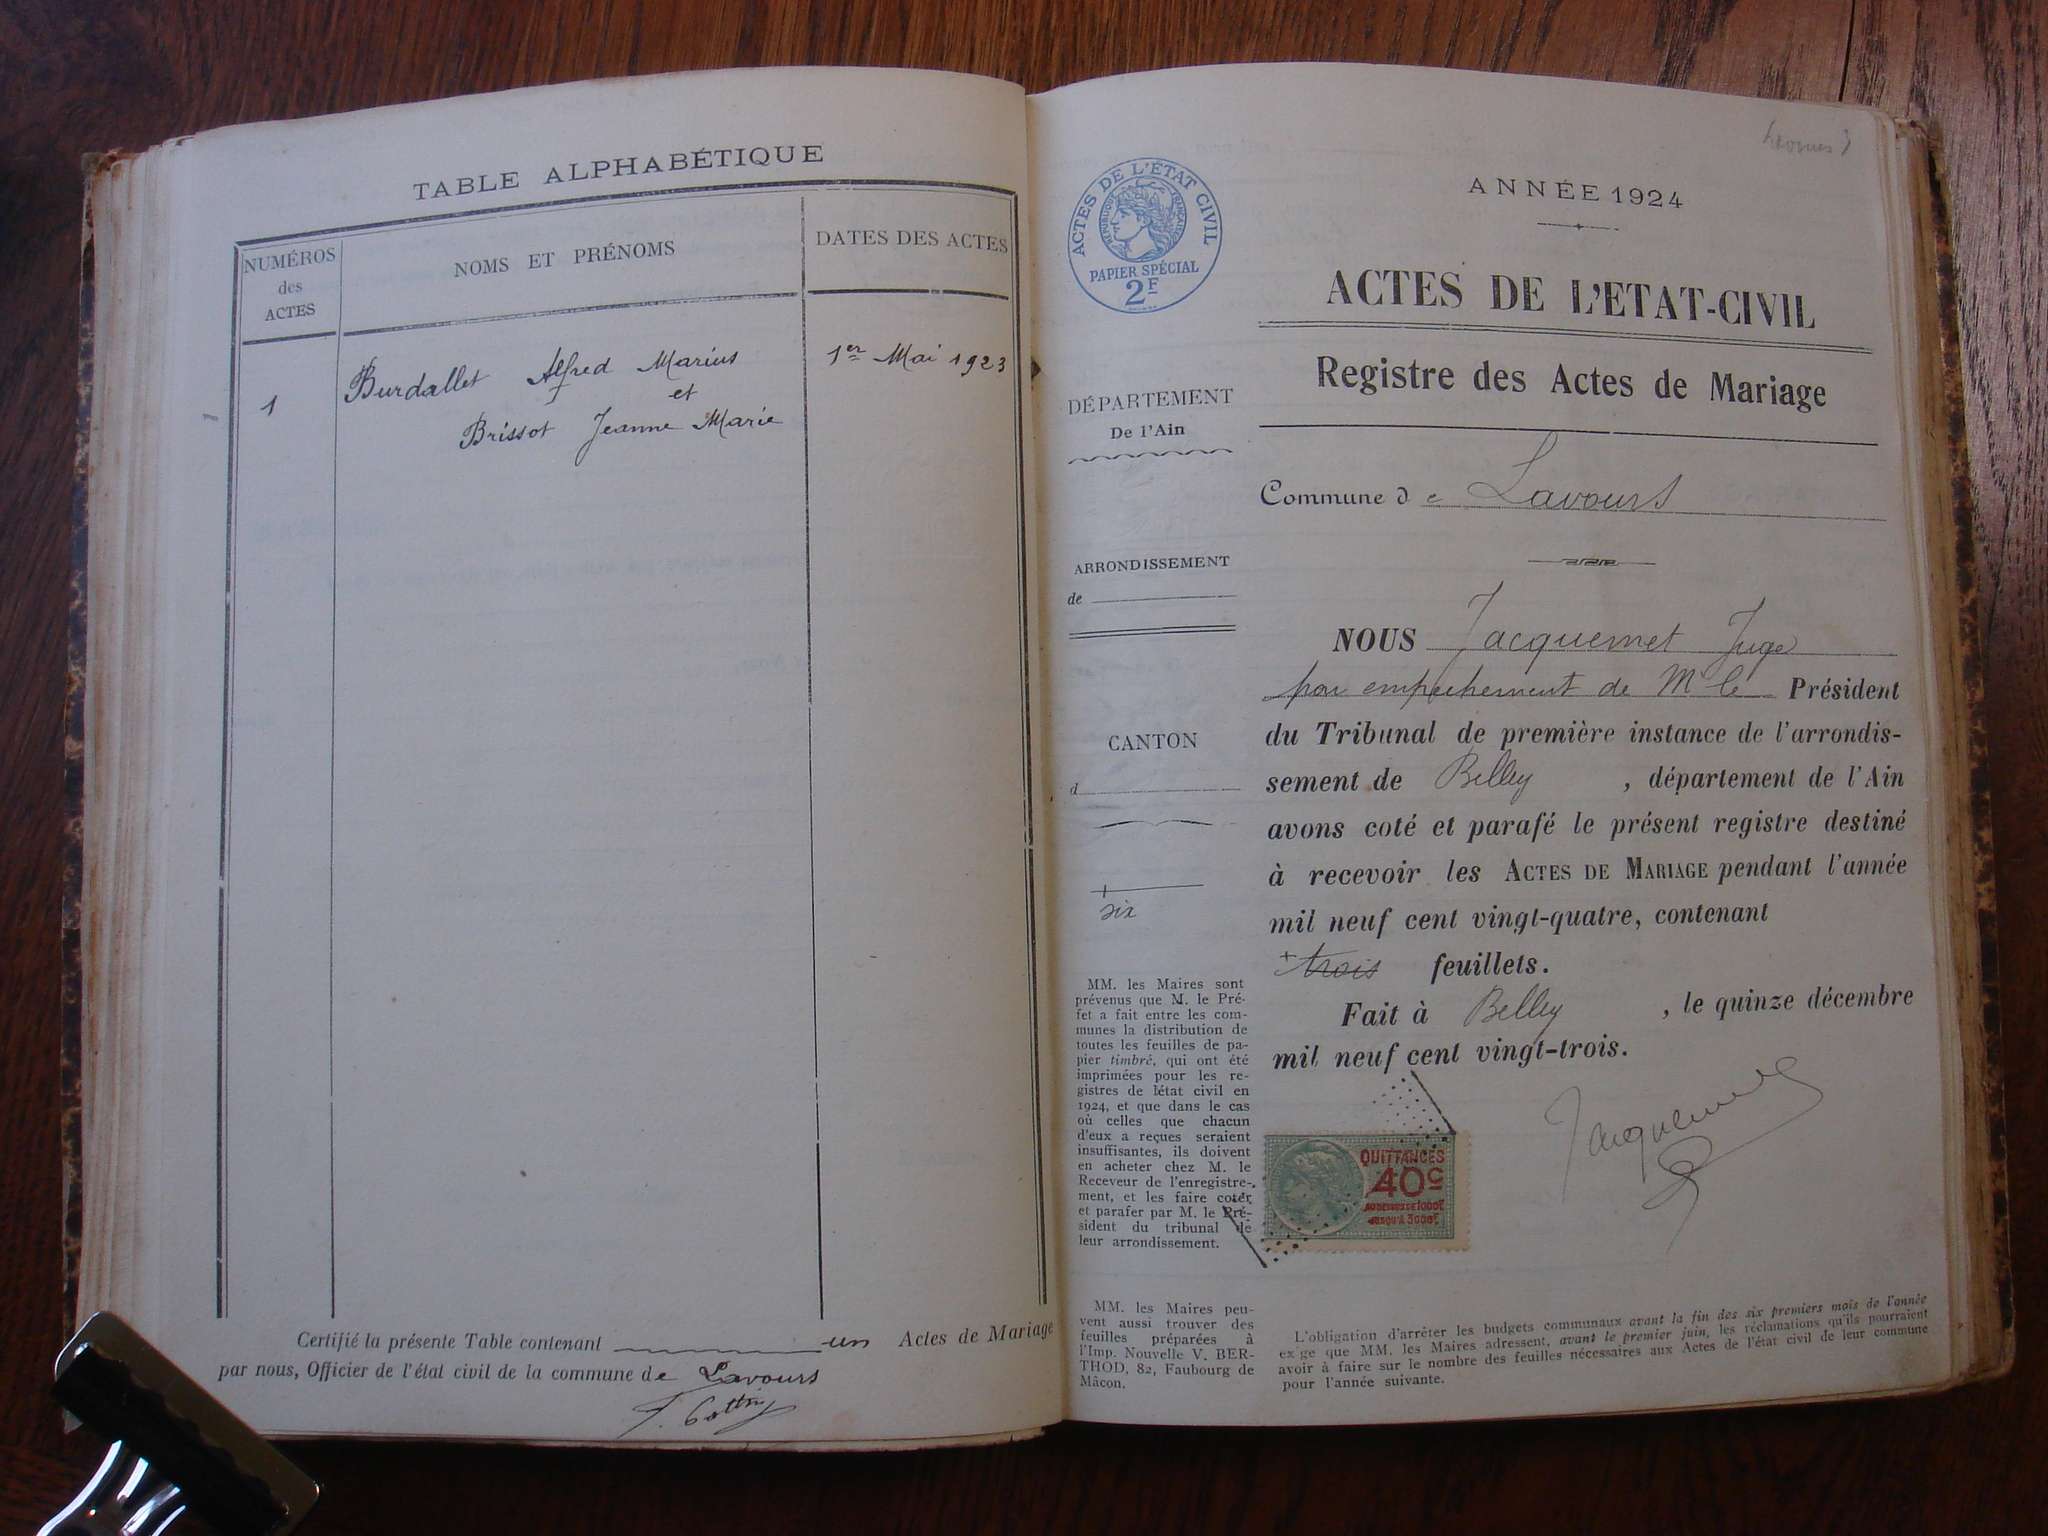 TABLE ALPHABÉTIQUE
NUMÉROS
des
ACTES
NOMS ET PRÉNOMS
DATES DES ACTES
1
Burdallet Alfred Marius
et
Brissot Jeanne Marie
1er Mai 1923
Certifié la présente Table contenant un Actes de Mariage
par nous, Officier de l'état civil de la commune de Lavours
Lavours
ACTES DE L'ÉTAT CIVIL
RÉPUBLIQUE FRANÇAISE
PAPIER SPÉCIAL
2F
DÉPARTEMENT
De l'Ain
ARRONDISSEMENT
de
CANTON
d
+
six
MM. les Maires sont
prévenus que M. le Pré-
fet a fait entre les com-
munes la distribution de
toutes les feuilles de pa-
pier timbré, qui ont été
imprimées pour les re-
gistres de létat civil en
1924, et que dans le cas
où celles que chacun
d'eux a reçues seraient
insuffisantes, ils doivent
en acheter chez M. le
Receveur de l'enregistre-
ment, et les faire coter
et parafer par M. le Pré-
sident du tribunal de
leur arrondissement.
MM. les Maires peu-
vent aussi trouver des
feuilles préparées à
l'Imp. Nouvelle V. BER-
THOD, 82, Faubourg de
Mâcon.
ANNÉE 1924
ACTES DE L'ETAT-CIVIL
Registre des Actes de Mariage
Commune de Lavours
NOUS Jacquemet Juge
par empechement de Mr le Président
du Tribunal de première instance de l'arrondis-
sement de Belley , département de l'Ain
avons coté et parafé le présent registre destiné
à recevoir les ACTES DE MARIAGE pendant l'année
mil neuf cent vingt-quatre, contenant
+ trois feuillets.
Fait à Belley , le quinze décembre
mil neuf cent vingt-trois.
Jacquemet
QUITTANCES
40c
AU DESSUS DE 1000F
JUSQU'À 3000F
L'obligation d'arrêter les budgets communaux avant la fin des six premiers mois de l'année
ex'ge que MM. les Maires adressent, avant le premier juin, les réclamations qu'ils pourraient
avoir à faire sur le nombre des feuilles nécessaires aux Actes de l'état civil de leur commune
pour l'année suivante.